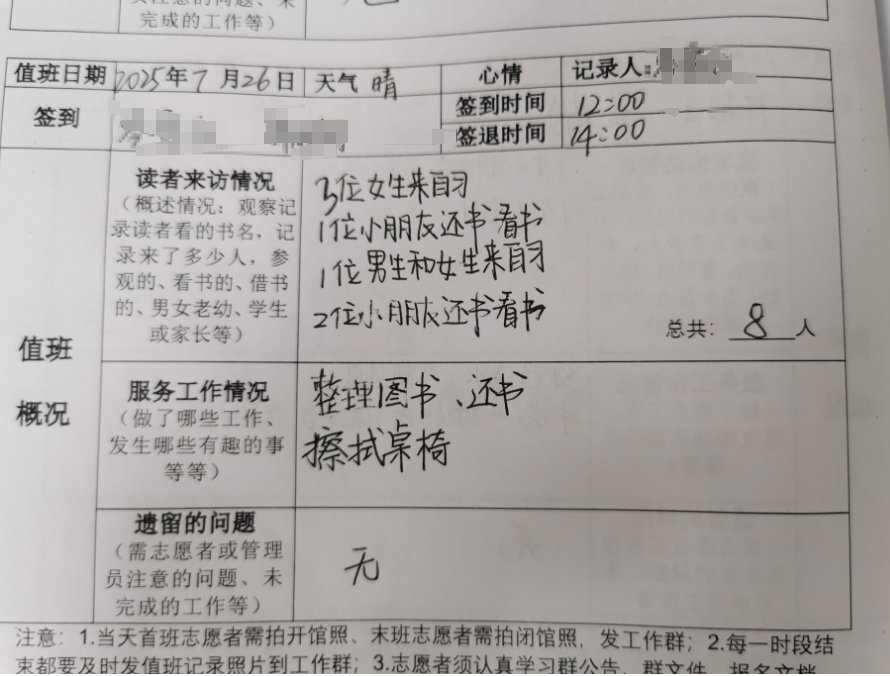 员注意的问题、未
完成的工作等）
值班日期 2025年7月26日 天气 晴 心情 记录人：
签到 签到时间 12:00
签退时间 14:00
读者来访情况
（概述情况：观察记
录读者看的书名，记
录来了多少人，参
观的、看书的、借书
的、男女老幼、学生
或家长等）
3位女生来自习
1位小朋友还书看书
1位男生和女生来自习
2位小朋友还书看书
总共：8人
值班
概况
服务工作情况
（做了哪些工作、
发生哪些有趣的事
等等）
整理图书、还书
擦拭桌椅
遗留的问题
（需志愿者或管理
员注意的问题、未
完成的工作等）
无
注意：1.当天首班志愿者需拍开馆照、末班志愿者需拍闭馆照，发工作群；2.每一时段结
束都要及时发值班记录照片到工作群；3.志愿者须认真学习群公告、群文件、报名文档